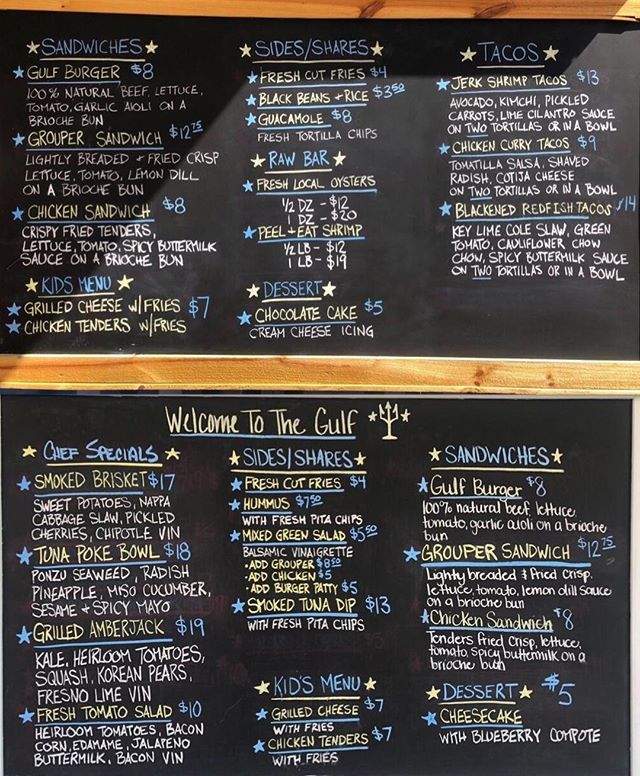 SANDWICHES
GULF BURGER $8
100% NATURAL BEEF, LETTUCE,
TOMATO, GARLIC AIOLI ON A
BRIOCHE BUN
GROUPER SANDWICH $12.75
LIGHTLY BREADED + FRIED CRISP
LETTUCE, TOMATO, LEMON DILL
ON A BRIOCHE BUN
CHICKEN SANDWICH $8
CRISPY FRIED TENDERS,
LETTUCE, TOMATO, SPICY BUTTERMILK
SAUCE ON A BRIOCHE BUN
KIDS MENU
GRILLED CHEESE W/FRIES $7
CHICKEN TENDERS W/FRIES
SIDES/SHARES
FRESH CUT FRIES $4
BLACK BEANS + RICE $3.50
GUACAMOLE $8
FRESH TORTILLA CHIPS
RAW BAR
FRESH LOCAL OYSTERS
1/2 DZ - $12
1 DZ - $20
PEEL + EAT SHRIMP
1/2 LB - $12
1 LB - $19
DESSERT
CHOCOLATE CAKE $5
CREAM CHEESE ICING
TACOS
JERK SHRIMP TACOS $13
AVOCADO, KIMCHI, PICKLED
CARROTS, LIME CILANTRO SAUCE
ON TWO TORTILLAS OR IN A BOWL
CHICKEN CURRY TACOS $9
TOMATILLA SALSA, SHAVED
RADISH, COTIJA CHEESE
ON TWO TORTILLAS OR IN A BOWL
BLACKENED REDFISH TACOS $14
KEY LIME COLE SLAW, GREEN
TOMATO, CAULIFLOWER CHOW
CHOW, SPICY BUTTERMILK SAUCE
ON TWO TORTILLAS OR IN A BOWL
Welcome To The Gulf
CHEF SPECIALS
SMOKED BRISKET $17
SWEET POTATOES, NAPPA
CABBAGE SLAW, PICKLED
CHERRIES, CHIPOTLE VIN
TUNA POKE BOWL $18
PONZU SEAWEED, RADISH
PINEAPPLE, MISO CUCUMBER,
SESAME + SPICY MAYO
GRILLED AMBERJACK $19
KALE, HEIRLOOM TOMATOES,
SQUASH, KOREAN PEARS,
FRESNO LIME VIN
FRESH TOMATO SALAD $10
HEIRLOOM TOMATOES, BACON
CORN, EDAMAME, JALAPENO
BUTTERMILK, BACON VIN
SIDES/SHARES
FRESH CUT FRIES $4
HUMMUS $7.50
WITH FRESH PITA CHIPS
MIXED GREEN SALAD $5.50
BALSAMIC VINAIGRETTE
·ADD GROUPER $8.50
·ADD CHICKEN $5
·ADD BURGER PATTY $5
SMOKED TUNA DIP $13
WITH FRESH PITA CHIPS
KID'S MENU
GRILLED CHEESE $7
WITH FRIES
CHICKEN TENDERS $7
WITH FRIES
SANDWICHES
Gulf Burger $8
100% natural beef, lettuce,
tomato, garlic aioli on a brioche
bun
GROUPER SANDWICH $12.75
Lightly breaded & fried crisp.
lettuce, tomato, lemon dill sauce
on a brioche bun
Chicken Sandwich $8
Tenders fried crisp, lettuce,
tomato, spicy buttermilk on a
brioche bun
DESSERT $5
CHEESECAKE
WITH BLUEBERRY COMPOTE